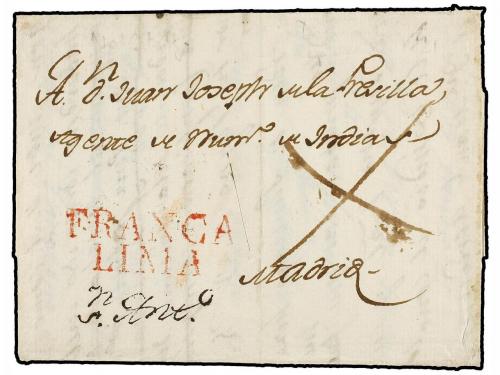 A. dn. Juan Joseph de la Presilla
Agente de Numo. de Indias
FRANCA
LIMA
Madrid
Sn. Anto.